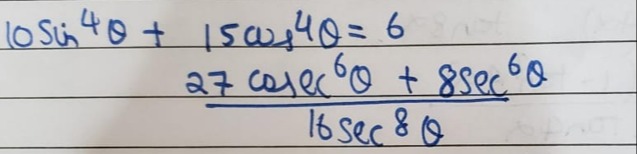 10 Sin⁴θ + 15 cos⁴θ = 6
27 cosec⁶θ + 8 sec⁶θ
16 sec⁸θ